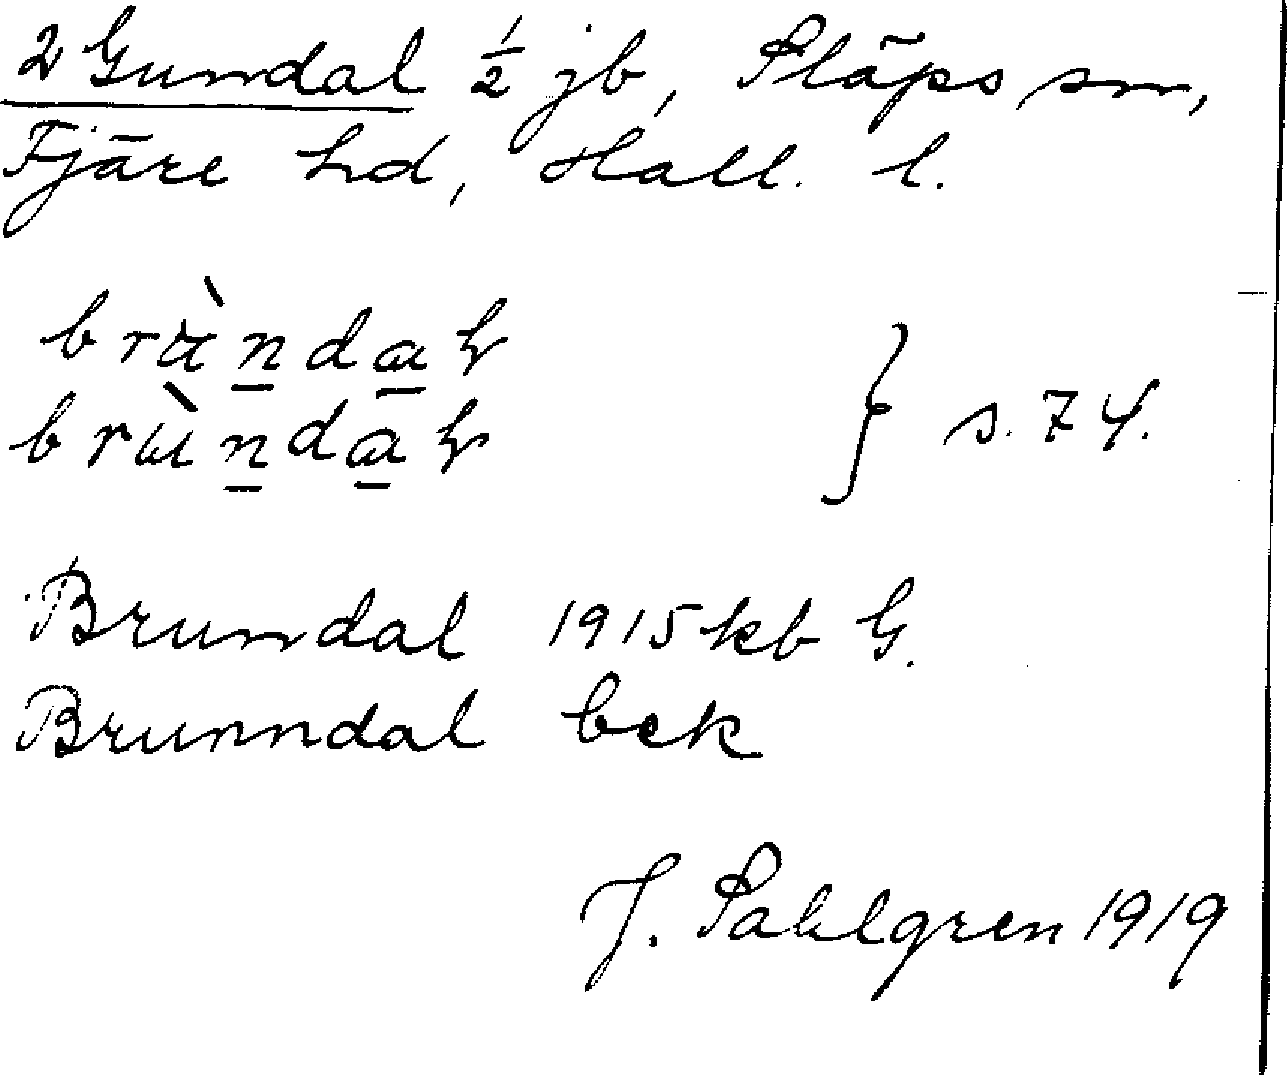 2 Gundal ½ jb, Släps sn,
Fjäre hd, Hall. l.
s. 74.
Brundal 1915 kb G.
Brunndal bek
J. Sahlgren 1919